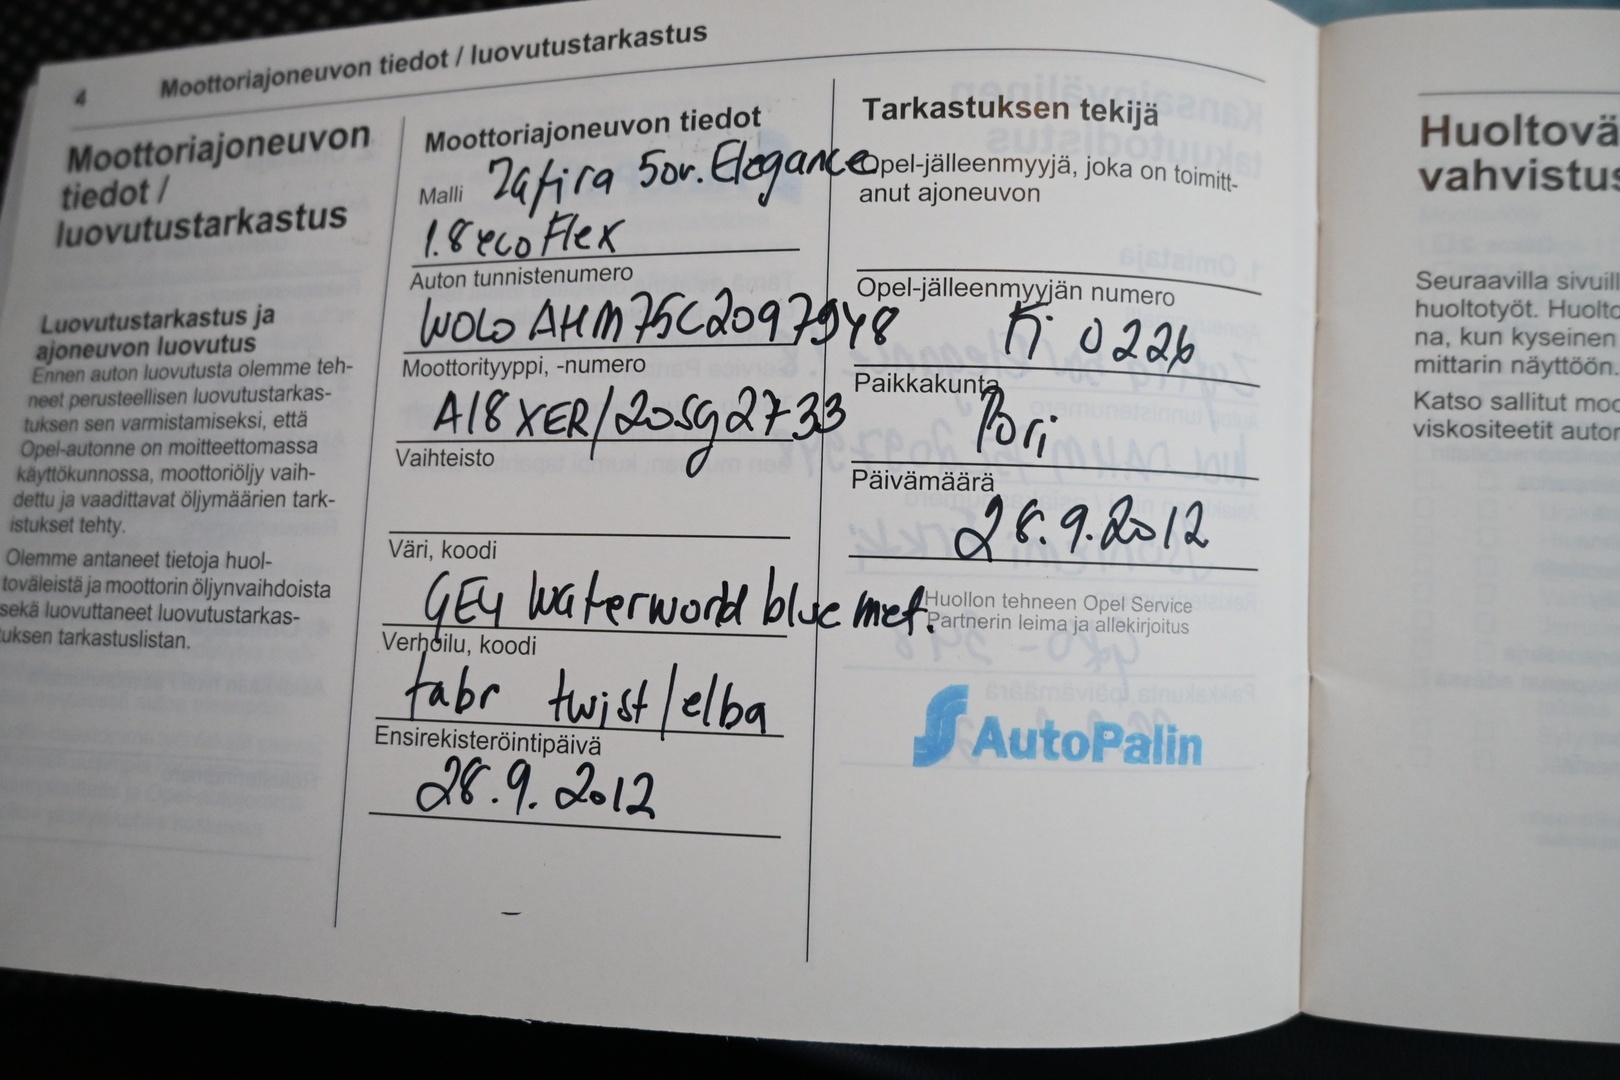 4 Moottoriajoneuvon tiedot / luovutustarkastus
Moottoriajoneuvon
tiedot /
luovutustarkastus
Luovutustarkastus ja
ajoneuvon luovutus
Ennen auton luovutusta olemme teh-
neet perusteellisen luovutustarkas-
tuksen sen varmistamiseksi, että
Opel-autonne on moitteettomassa
käyttökunnossa, moottoriöljy vaih-
dettu ja vaadittavat öljymäärien tark-
istukset tehty.
Olemme antaneet tietoja huol-
toväleistä ja moottorin öljynvaihdoista
sekä luovuttaneet luovutustarkas-
tuksen tarkastuslistan.
Moottoriajoneuvon tiedot
Malli Zafira 5ov. Elegance
1.8 ecoFlex
Auton tunnistenumero
W0L0AHM75C2097948
Moottorityyppi, -numero
A18XER/20SG2733
Vaihteisto
Väri, koodi
GEY Waterworld blue met.
Verhoilu, koodi
fabr twist/elba
Ensirekisteröintipäivä
28.9.2012
Tarkastuksen tekijä
Opel-jälleenmyyjä, joka on toimitt-
anut ajoneuvon
Opel-jälleenmyyjän numero
Fi 0226
Paikkakunta
Pori
Päivämäärä
28.9.2012
Huollon tehneen Opel Service
Partnerin leima ja allekirjoitus
AutoPalin
Huoltovä
vahvistus
Seuraavilla sivuill
huoltotyöt. Huolto
na, kun kyseinen
mittarin näyttöön.
Katso sallitut moo
viskositeetit autor